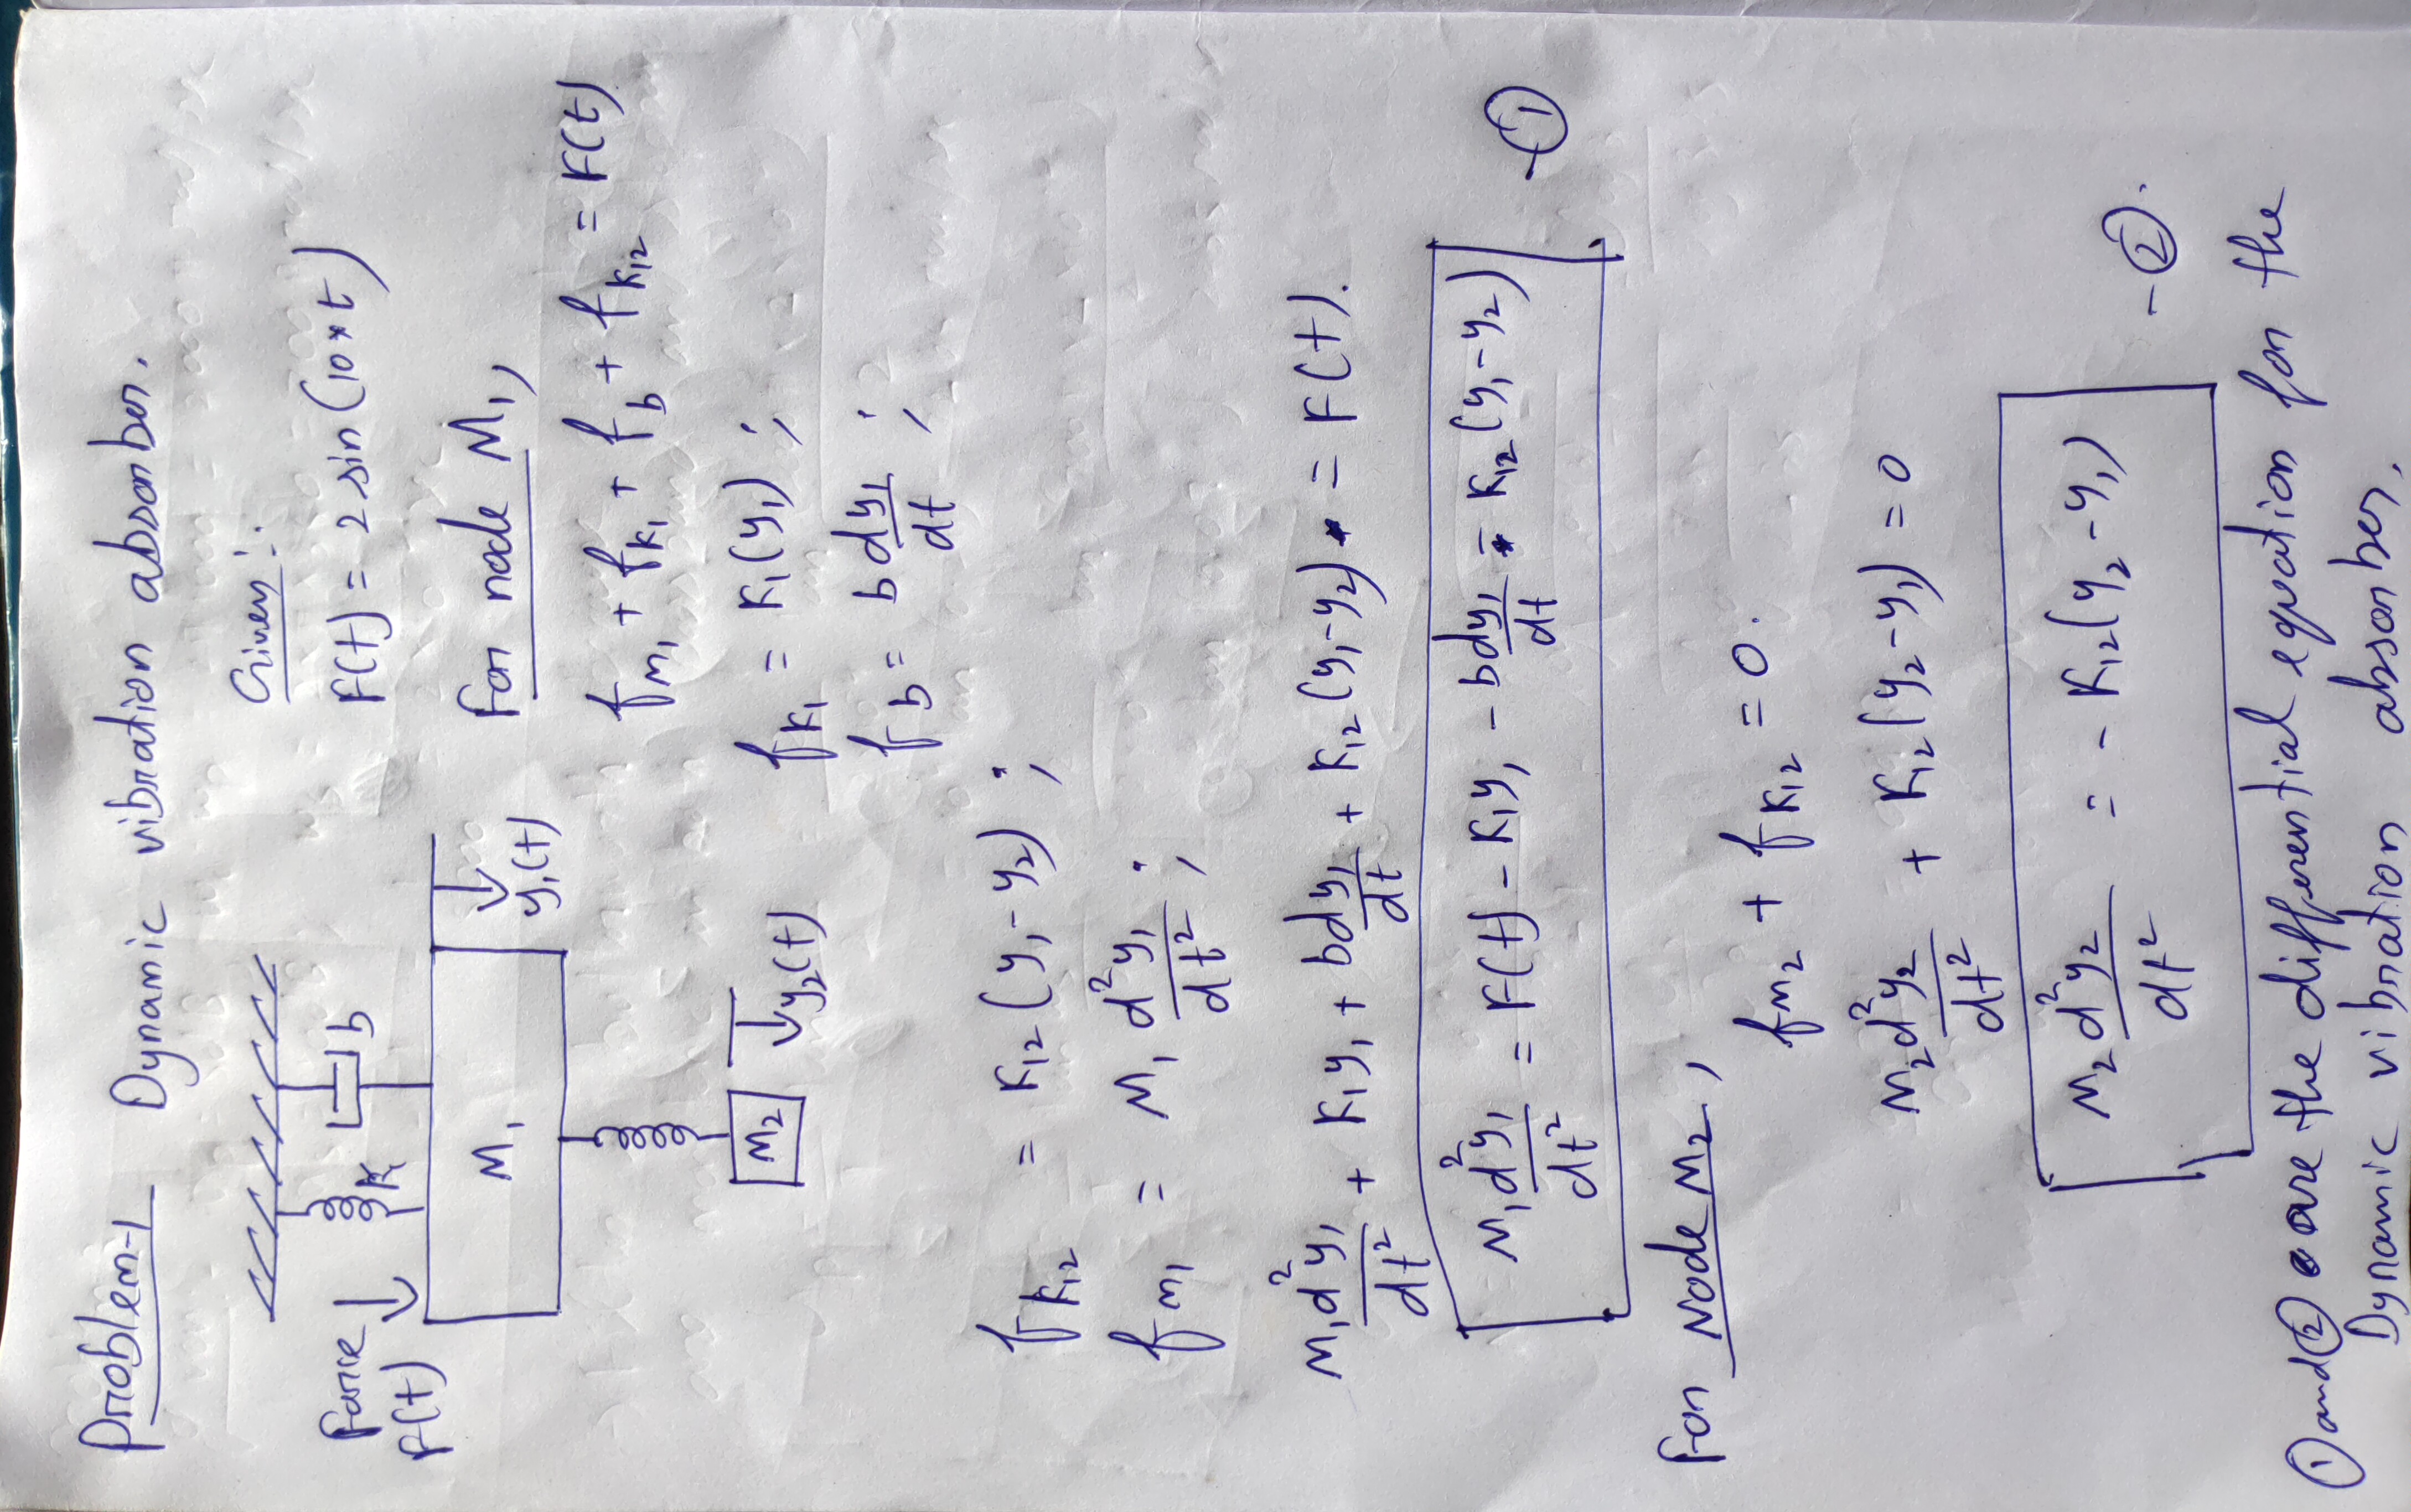 Problem-1 Dynamic vibration absorber.
Given :-
Force F(t)
K
b
F(t) = 2 sin (10*t)
M₁
y₁(t)
For node M₁,
fm₁ + fK₁ + fb + fK₁₂ = F(t)
M₂
y₂(t)
fK₁ = K₁(y₁) ;
fb = b dy₁/dt ;
fK₁₂ = K₁₂ (y₁-y₂) ;
fm₁ = M₁ d²y₁/dt² ;
M₁d²y₁/dt² + K₁y₁ + bdy₁/dt + K₁₂ (y₁-y₂) = F(t).
M₁d²y₁/dt² = F(t) - K₁y₁ - bdy₁/dt - K₁₂ (y₁-y₂) -①
For Node M₂,
fm₂ + fK₁₂ = 0.
M₂d²y₂/dt² + K₁₂(y₂-y₁) = 0
M₂d²y₂/dt² = - K₁₂(y₂-y₁) -②.
① and ② are the differential equation for the
Dynamic vibration absorber.